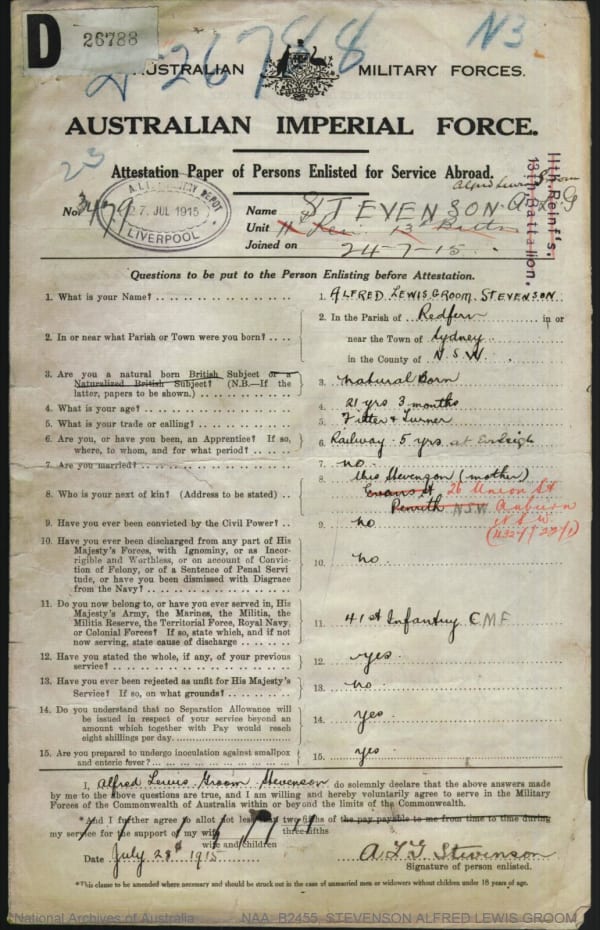 D 26788
26788
N3
AUSTRALIAN MILITARY FORCES.
AUSTRALIAN IMPERIAL FORCE.
23
Attestation Paper of Persons Enlisted for Service Abroad.
11th Reinf's.
13th Battalion.
No. 3479
27 JUL 1915
LIVERPOOL
Alfred Lewis Groom
Name STEVENSON A L G
Unit 11 Rei 13th Battn
Joined on 24-7-15
Questions to be put to the Person Enlisting before Attestation.
1. What is your Name? 1. ALFRED LEWIS GROOM STEVENSON
2. In or near what Parish or Town were you born? 2. In the Parish of Redfern in or
near the Town of Sydney
in the County of N.S.W.
3. Are you a natural born British Subject or a
Naturalized British Subject? (N.B.—If the
latter, papers to be shown.) 3. Natural Born
4. What is your age? 4. 21 yrs 3 months
5. What is your trade or calling? 5. Fitter & Turner
6. Are you, or have you been, an Apprentice? If so,
where, to whom, and for what period? 6. Railway 5 yrs at Eveleigh
7. Are you married? 7. no
8. Who is your next of kin? (Address to be stated) 8. Stevenson (mother)
Evans St 26 Union St
Penrith NSW Auburn
N.S.W.
9. Have you ever been convicted by the Civil Power? 9. no
10. Have you ever been discharged from any part of His
Majesty's Forces, with Ignominy, or as Incor-
rigible and Worthless, or on account of Convic-
tion of Felony, or of a Sentence of Penal Servi
tude, or have you been Dismissed with Disgrace
from the Navy? 10. no
11. Do you now belong to, or have you ever served in, His
Majesty's Army, the Marines, the Militia, the
Militia Reserve, the Territorial Force, Royal Navy,
or Colonial Forces? If so, state which, and if not
now serving, state cause of discharge 11. 41st Infantry CMF
12. Have you stated the whole, if any, of your previous
service? 12. yes
13. Have you ever been rejected as unfit for His Majesty's
Service? If so, on what grounds? 13. no
14. Do you understand that no Separation Allowance will
be issued in respect of your service beyond an
amount which together with Pay would reach
eight shillings per day. 14. yes
15. Are you prepared to undergo inoculation against smallpox
and enteric fever? 15. yes
I, Alfred Lewis Groom Stevenson do solemnly declare that the above answers made
by me to the above questions are true, and I am willing and hereby voluntarily agree to serve in the Military
Forces of the Commonwealth of Australia within or beyond the limits of the Commonwealth.
*And I further agree to allot not less than two fifths of the pay payable to me from time to time during
three-fifths
my service for the support of my wife
wife and children
Date July 28th 1915 A L G Stevenson
Signature of person enlisted.
*This clause to be amended where necessary and should be struck out in the case of unmarried men or widowers without children under 18 years of age.
National Archives of Australia NAA: B2455, STEVENSON ALFRED LEWIS GROOM